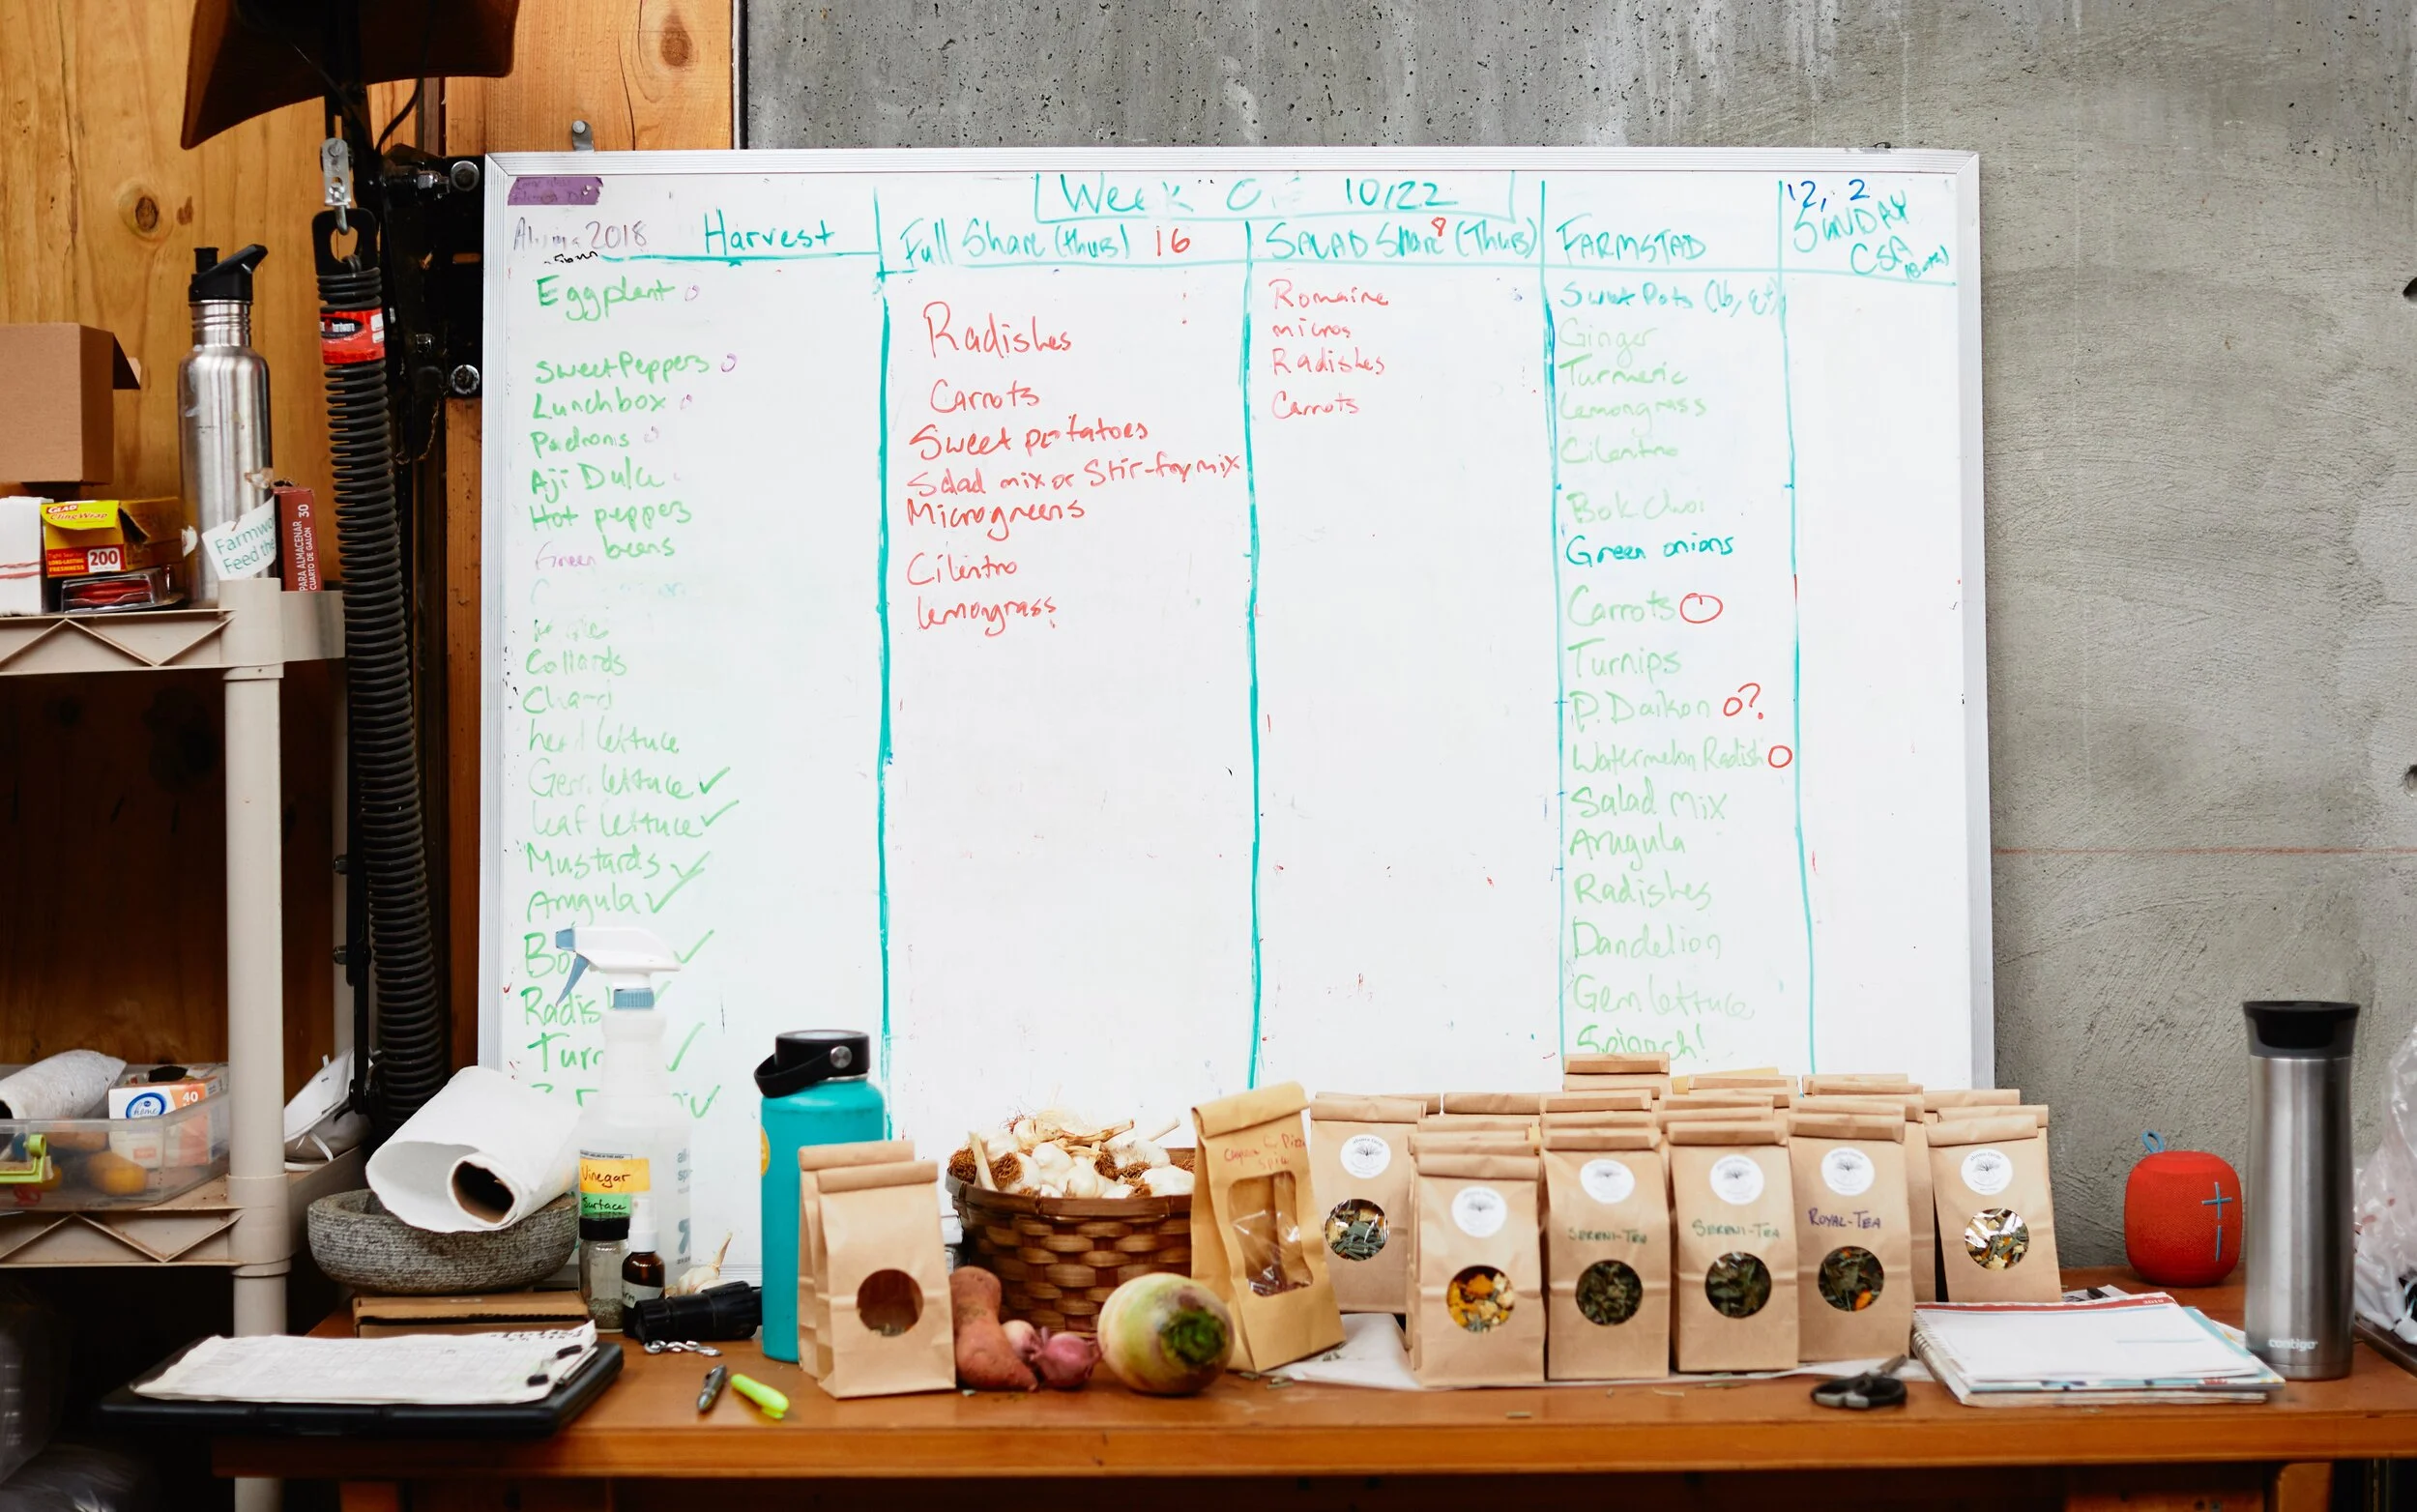 Week 10/22
2018 Harvest
Full Share (thurs) 16
SALAD Share 8 (Thurs)
FARMSTAD
12, 2
SUNDAY
CSA
Eggplant
Sweet Peppers
Lunchbox
Padrons
Aji Dulce
Hot peppers
Green beans
Collards
Chard
head lettuce
Gem lettuce ✓
leaf lettuce ✓
Mustards ✓
Arugula ✓
Bo ✓
Radis
Turn ✓
Radishes
Carrots
Sweet potatoes
Salad mix or Stir-fry mix
Microgreens
Cilantro
lemongrass
Romaine
micros
Radishes
Carrots
Sweet Pots
Ginger
Turmeric
Lemongrass
Cilantro
Bok Choi
Green onions
Carrots
Turnips
P. Daikon o?
Watermelon Radish O
Salad Mix
Arugula
Radishes
Dandelion
Gem lettuce
Spinach!
GLAD
ClingWrap
200
30
PARA ALMACENAR
CUARTO DE GALÓN
Farmwo
Feed the
home
40
Vinegar
Surface
SERENI-TEA
SERENI-TEA
ROYAL-TEA
contigo